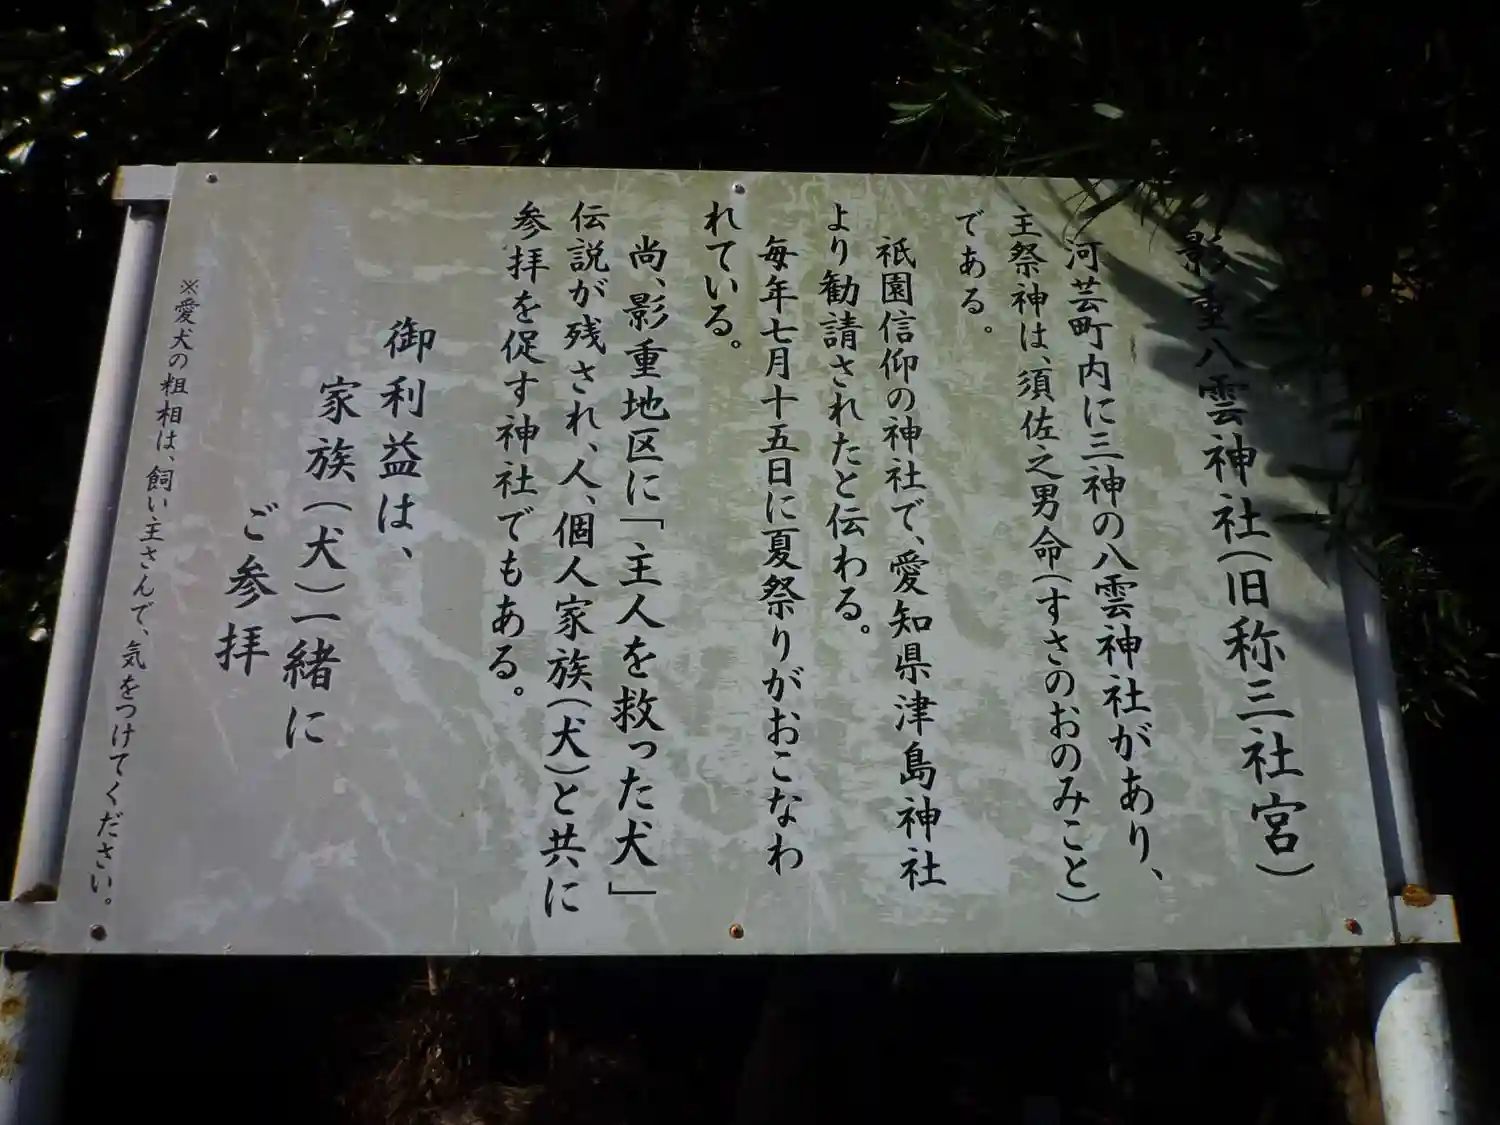 影重八雲神社(旧称三社宮)
河芸町内に三神の八雲神社があり、
主祭神は、須佐之男命(すさのおのみこと)
である。
祇園信仰の神社で、愛知県津島神社
より勧請されたと伝わる。
毎年七月十五日に夏祭りがおこなわ
れている。
尚、影重地区に「主人を救った犬」
伝説が残され、人、個人家族(犬)と共に
参拝を促す神社でもある。
御利益は、
家族(犬)一緒に
ご参拝
※愛犬の粗相は、飼い主さんで、気をつけてください。